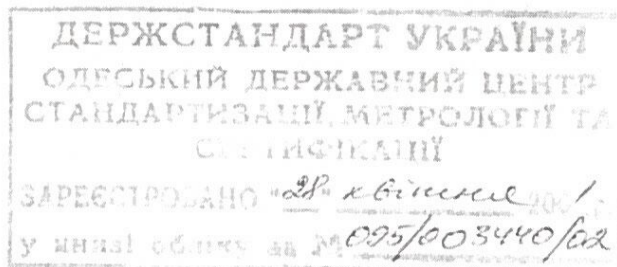 ДЕРЖСТАНДАРТ УКРАЇНИ
ОДЕСЬКИЙ ДЕРЖАВНИЙ ЦЕНТР
СТАНДАРТИЗАЦІЇ, МЕТРОЛОГІЇ ТА
СЕРТИФІКАЦІЇ
ЗАРЕЄСТРОВАНО "28" квітня 200 1 р.
у книзі обліку за № 095/003440/02